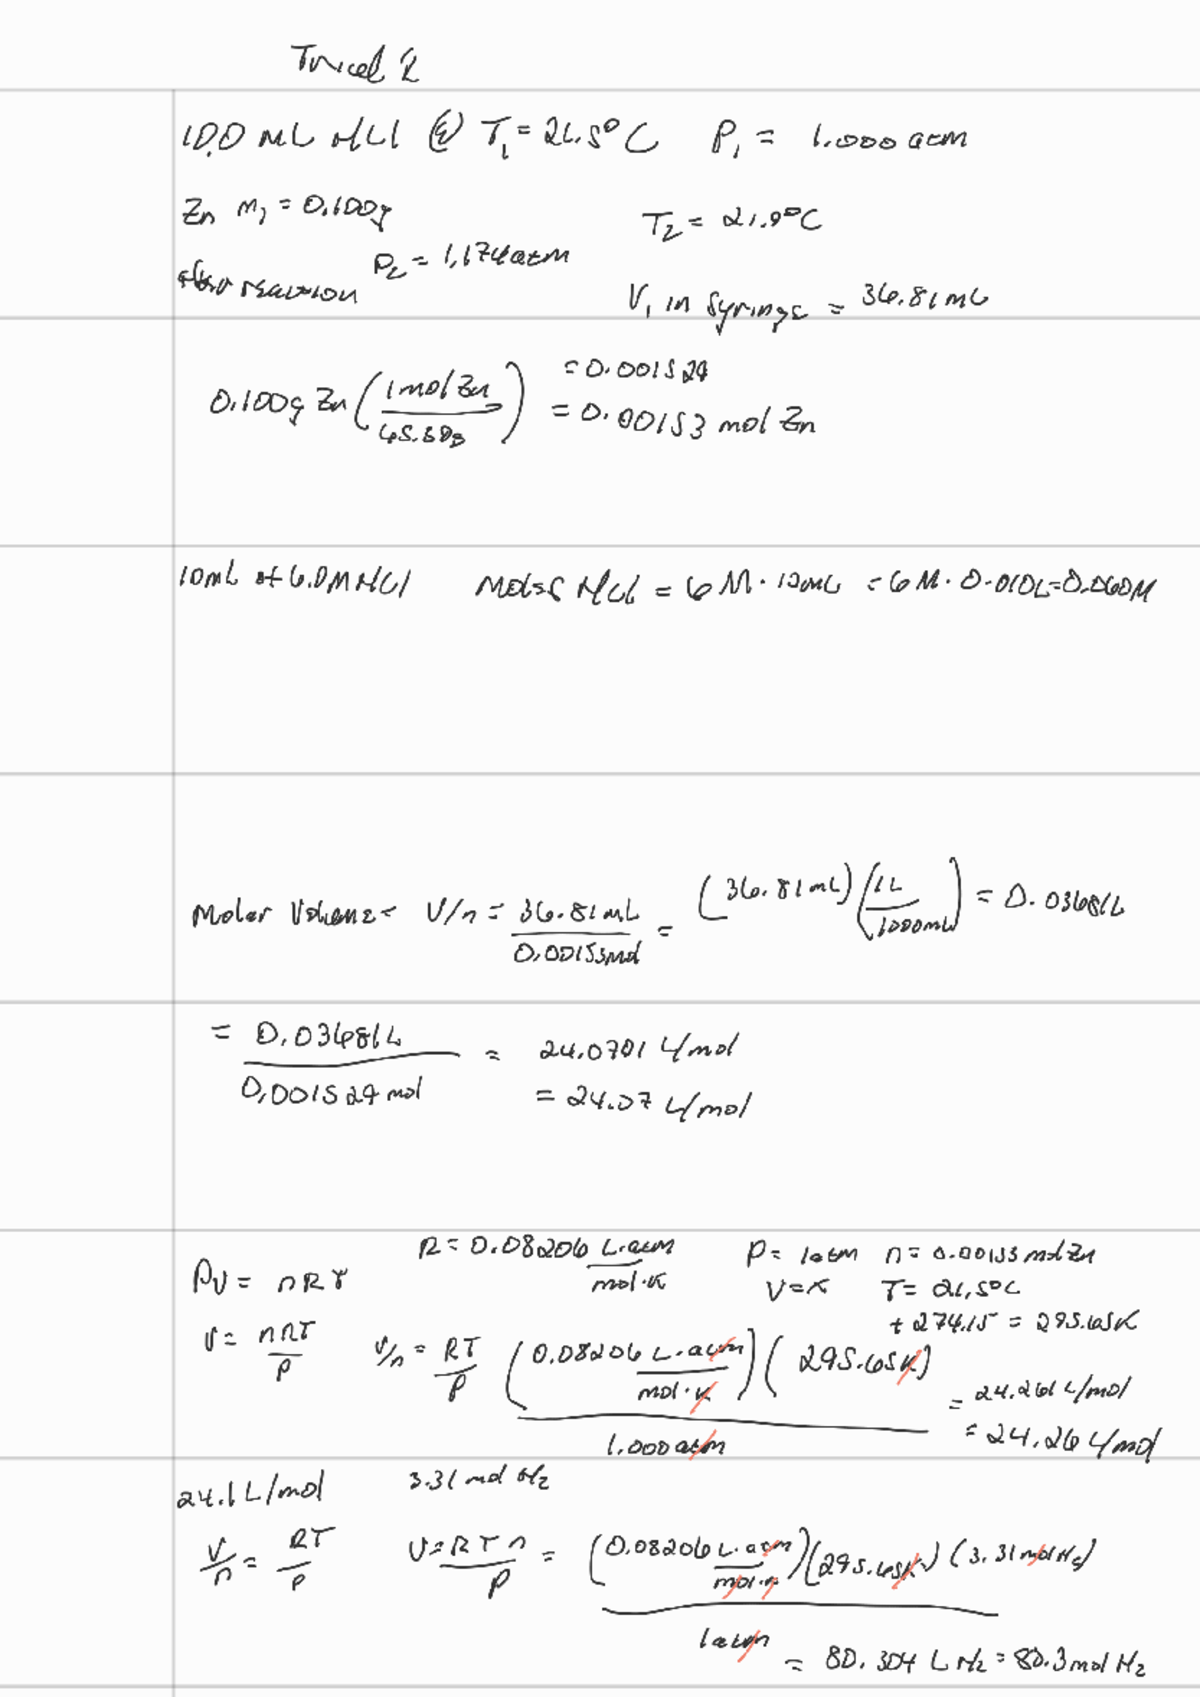 Trial 2
10.0 mL HCl @ T₁ = 21.5°C P₁ = 1.000 atm
Zn m₁ = 0.100g T₂ = 21.9°C
after reaction P₂ = 1.174 atm V₁ in Syringe = 36.81 mL
0.100g Zn (1 mol Zn / 65.38g) = 0.001529
= 0.00153 mol Zn
10mL of 6.0M HCl Mols of HCl = 6M · 10mL = 6M · 0.010L = 0.060M
Molar Volume = V/n = 36.81 mL / 0.00153 mol = (36.81 mL)(1L / 1000mL) = 0.03681L
= 0.03681L / 0.001529 mol = 24.0701 L/mol
= 24.07 L/mol
PV = nRT R = 0.08206 L·atm / mol·K P = 1 atm n = 0.00153 mol Zn
V = x T = 21.5°C
+ 274.15 = 295.65K
V = nRT / P V/n = RT / P (0.08206 L·atm / mol·K)(295.65K) / 1.000 atm = 24.261 L/mol
= 24.26 L/mol
24.1 L/mol 3.31 mol H₂
V/n = RT / P V = RTn / P = (0.08206 L·atm / mol·K)(295.65K)(3.31 mol H₂) / 1 atm
= 80.304 L H₂ = 80.3 mol H₂